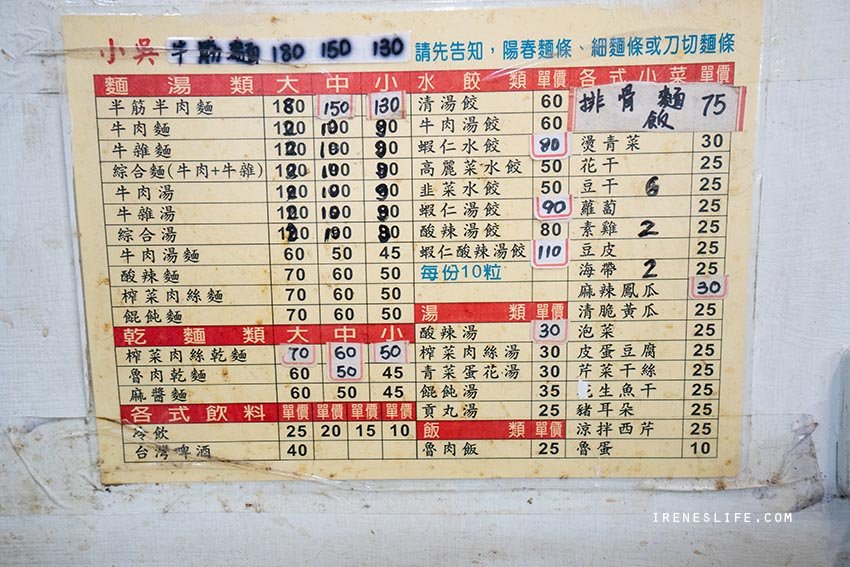 小吳 牛筋麵 180 150 130 請先告知，陽春麵條、細麵條或刀切麵條
麵湯類 大 中 小
半筋半肉麵 180 150 130
牛肉麵 120 100 90
牛雜麵 120 100 90
綜合麵(牛肉+牛雜) 120 100 90
牛肉湯 120 100 90
牛雜湯 120 100 90
綜合湯 120 100 80
牛肉湯麵 60 50 45
酸辣麵 70 60 50
榨菜肉絲麵 70 60 50
餛飩麵 70 60 50
乾麵類 大 中 小
榨菜肉絲乾麵 70 60 50
魯肉乾麵 60 50 45
麻醬麵 60 50 45
各式飲料 單價 單價 單價 單價
冷飲 25 20 15 10
台灣啤酒 40
水餃類 單價
清湯餃 60
牛肉湯餃 60
蝦仁水餃 80
高麗菜水餃 50
韭菜水餃 50
蝦仁湯餃 90
酸辣湯餃 80
蝦仁酸辣湯餃 110
每份10粒
湯類 單價
酸辣湯 30
榨菜肉絲湯 30
青菜蛋花湯 30
餛飩湯 35
貢丸湯 25
飯類 單價
魯肉飯 25
各式小菜 單價
排骨麵 75
飯
燙青菜 30
花干 25
豆干 6 25
蘿蔔 25
素雞 2 25
豆皮 25
海帶 2 25
麻辣鳳爪 30
清脆黃瓜 25
泡菜 25
皮蛋豆腐 25
芹菜干絲 25
生魚干 25
豬耳朵 25
涼拌西芹 25
魯蛋 10
IRENESLIFE.COM